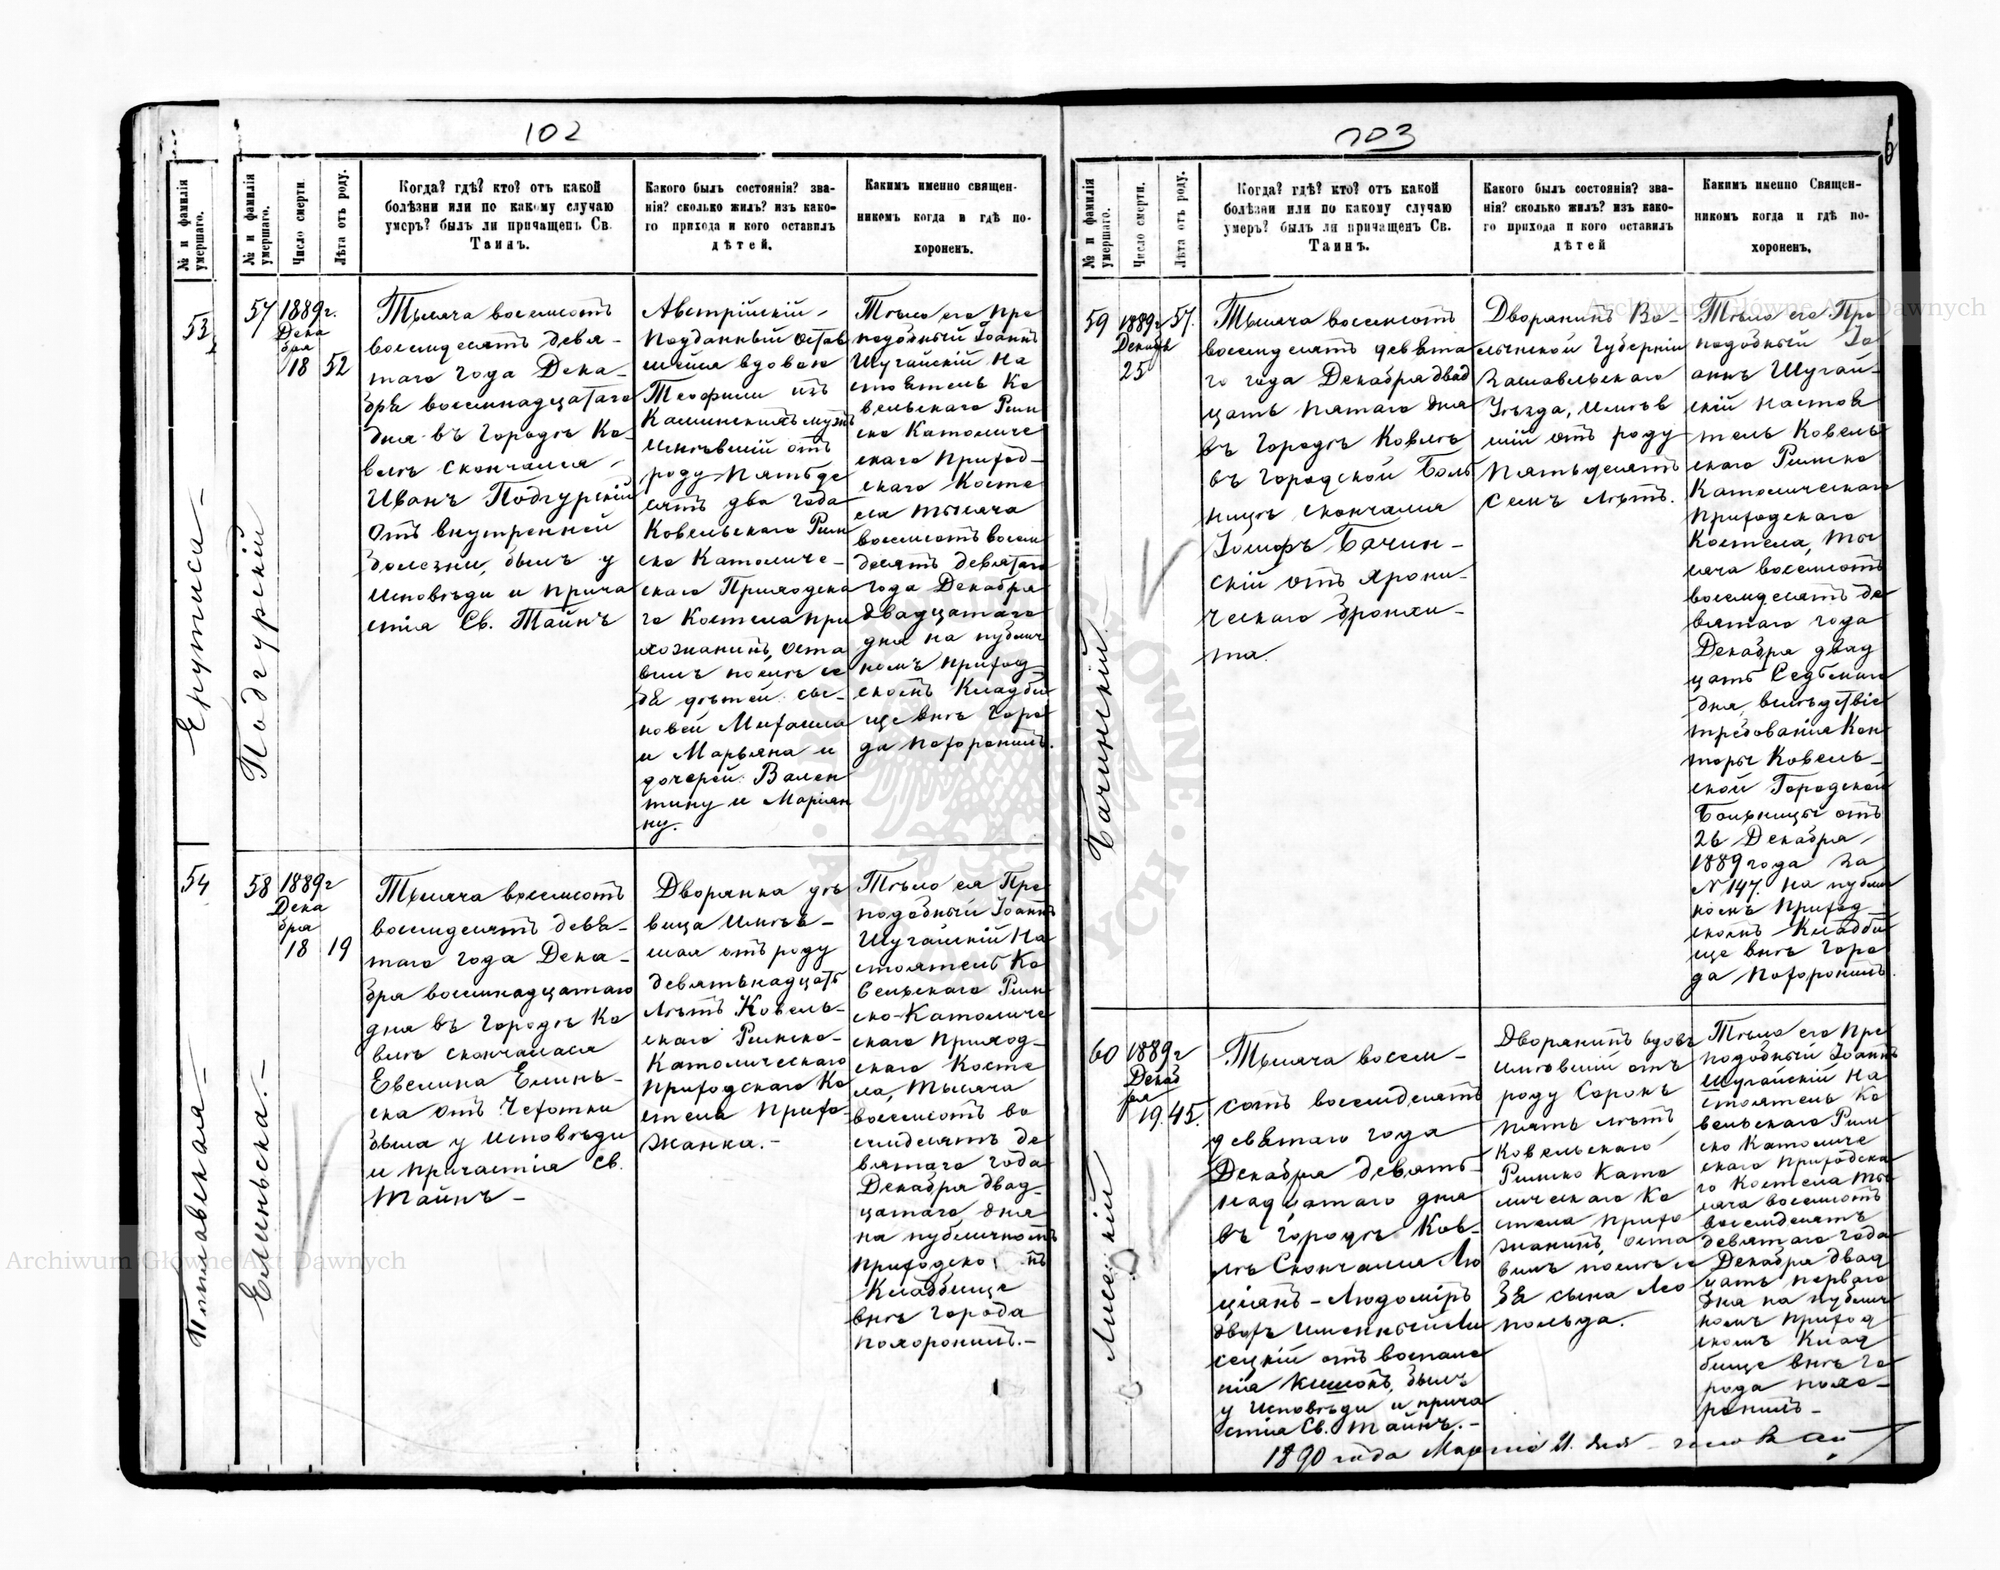 102
№ и фамилія умершаго.
53
Енутиса -
54
Поплавская -
№ и фамилія умершаго.
Число смерти
Лѣта отъ роду.
Когда? гдѣ? кто? отъ какой
болѣзни или по какому случаю
умеръ? былъ ли причащенъ Св.
Таинъ.
Какого былъ состоянія? зва-
нія? сколько жилъ? изъ како-
го прихода и кого оставилъ
дѣтей.
Какимъ именно священ-
никомъ когда и гдѣ по-
хороненъ.
57
Подгурскій
1889 г.
Дека
бря
18
52
Тысяча восемсотъ
восемдесятъ девя-
таго года Дека-
бря восемнадцатаго
дня въ городѣ Ко-
велѣ скончался
Иванъ Подгурскій
отъ внутренней
болезни, былъ у
исповѣди и прича
стія Св. Тайнъ
Австрійскій
подданный остав
шейся вдовою
Теофили изъ
Каминскихъ мужъ
имѣвшій отъ
роду пятьде
сятъ два года
Ковельскаго Рим
ско Католиче-
скаго Приходска
го Костела при
хожанинъ, оста
вилъ послѣ се
бя дѣтей: сы-
новей Михаила
и Марьяна и
дочерей: Вален
тину и Маріан
ну.
Тѣло его Пре
подобный Іоаннъ
Шугайскій На
стоятель Ко
вельскаго Рим
ско Католиче
скаго Приход-
скаго Косте
ла тысяча
восемсотъ восем
десятъ девятаго
года Декабря
двадцатаго
дня на публич
номъ приход
скомъ Кладби
ще внѣ горо
да похоронилъ.
58
Елиньска. -
1889 г
Дека
бря
18
19
Тысяча восемсотъ
восемдесятъ девя-
таго года Дека-
бря восемнадцатаго
дня въ городѣ Ко
велѣ скончалася
Евелина Елинь-
ска отъ Чехотки
была у исповѣди
и причастія Св.
Тайнъ -
Дворянка дѣ
вица имѣв-
шая отъ роду
девятьнадцать
лѣтъ Ковель-
скаго Римско-
Католическаго
Приходскаго Ко
стела прихо-
жанка. -
Тѣло ея Пре
подобный Іоаннъ
Шугайскій На
стоятель Ко
вельскаго Рим
ско-Католиче
скаго Приход-
скаго Косте
ла, тысяча
восемсотъ во
семдесятъ де
вятаго года
Декабря двад-
цатаго дня
на публичномъ
приходско
Кладбище
внѣ города
похоронилъ. -
103
6
№ и фамилія умершаго.
Число смерти.
Лѣта отъ роду.
Когда? гдѣ? кто? отъ какой
болѣзни или по какому случаю
умеръ? былъ ли причащенъ Св.
Таинъ.
Какого былъ состоянія? зва-
нія? сколько жилъ? изъ како-
го прихода и кого оставилъ
дѣтей
Какимъ именно Священ-
никомъ когда и гдѣ по-
хороненъ.
59
Бачинскій
1889 г
Декабря
25
57.
Тысяча восемсотъ
восемдесятъ девята
го года Декабря двад
цать пятаго дня
въ городѣ Ковлѣ
въ городской Боль
ницѣ скончался
Іосифъ Бачин-
скій отъ хрони-
ческаго бронхи-
та.
Дворянинъ Во-
лынской Губерніи
Заславльскаго
Уѣзда, имѣв
шій отъ роду
пятьдесятъ
семъ лѣтъ.
Тѣло его Пре
подобный Іо
аннъ Шугай-
скій настоя
тель Ковель
скаго Римско
Католическаго
Приходскаго
Костела, ты
сяча восемсотъ
восемдесятъ де
вятаго года
Декабря двад
цать седьмаго
дня, вслѣдствіе
требованія Кон
торы Ковель-
ской Городской
Больницы отъ
26 Декабря
1889 года за
№ 147. на публич
номъ приход
скомъ Кладби
ще внѣ горо
да похоронилъ.
60
1889 г
Декаб
ря
19.
45.
Тысяча восем-
сотъ восемдесятъ
девятаго года
Декабря девять-
надцатаго дня
въ городѣ Ков-
лѣ Скончался Лю
ціанъ-Людоміръ
двохъ именный Ли
сецкій отъ воспале
нія кишокъ, былъ
у исповѣди и прича
стія Св. Тайнъ. -
Дворянинъ вдовъ
имѣвшій отъ
роду сорокъ
пять лѣтъ
Ковельскаго
Римско Като
лическаго Ко
стела прихо
жанинъ, оста
вилъ послѣ се
бя сына Лео
польда.
Тѣло его Пре
подобный Іоаннъ
Шугайскій На
стоятель Ко
вельскаго Рим
ско Католиче
скаго Приходска
го Костела ты
сяча восемсотъ
восемдесятъ
девятаго года
Декабря двад
цать перваго
дня на публич
номъ приход
скомъ Клад
бище внѣ го
рода похо-
ронилъ -
1890 года Марта 21. дня
Archiwum Główne Akt Dawnych
Archiwum Główne Akt Dawnych